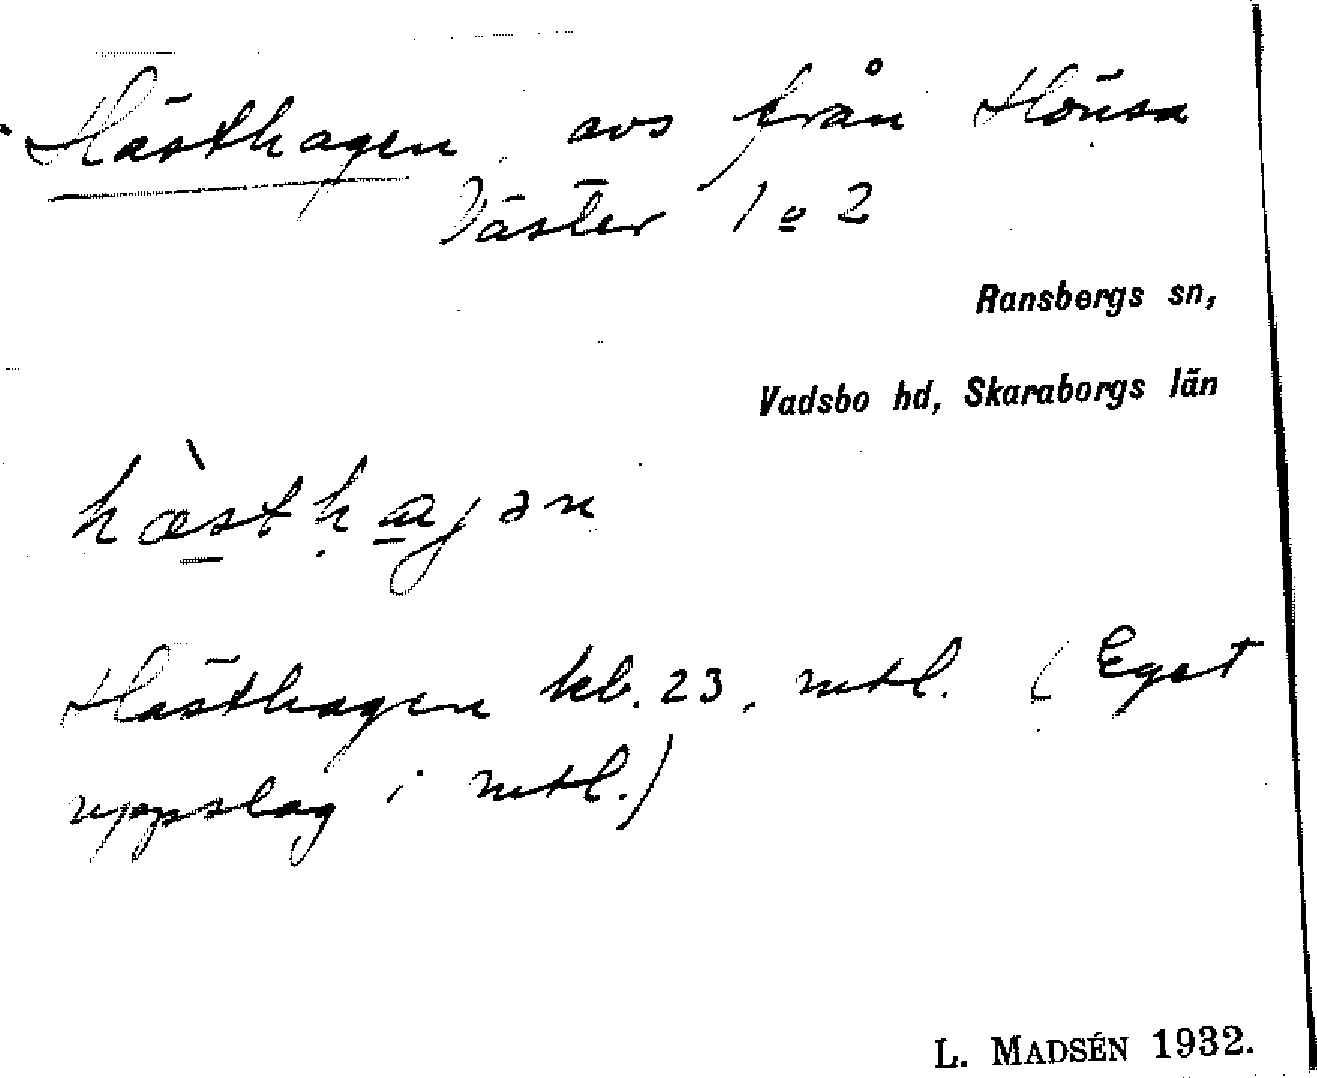 Hästhagen avs från Hönsa
Väster 1 o 2
Ransbergs sn,
Vadsbo hd, Skaraborgs län
hæ̀sthagən
Hästhagen kb. 23, mtl. (Eget
uppslag i mtl.)
L. MADSÉN 1932.